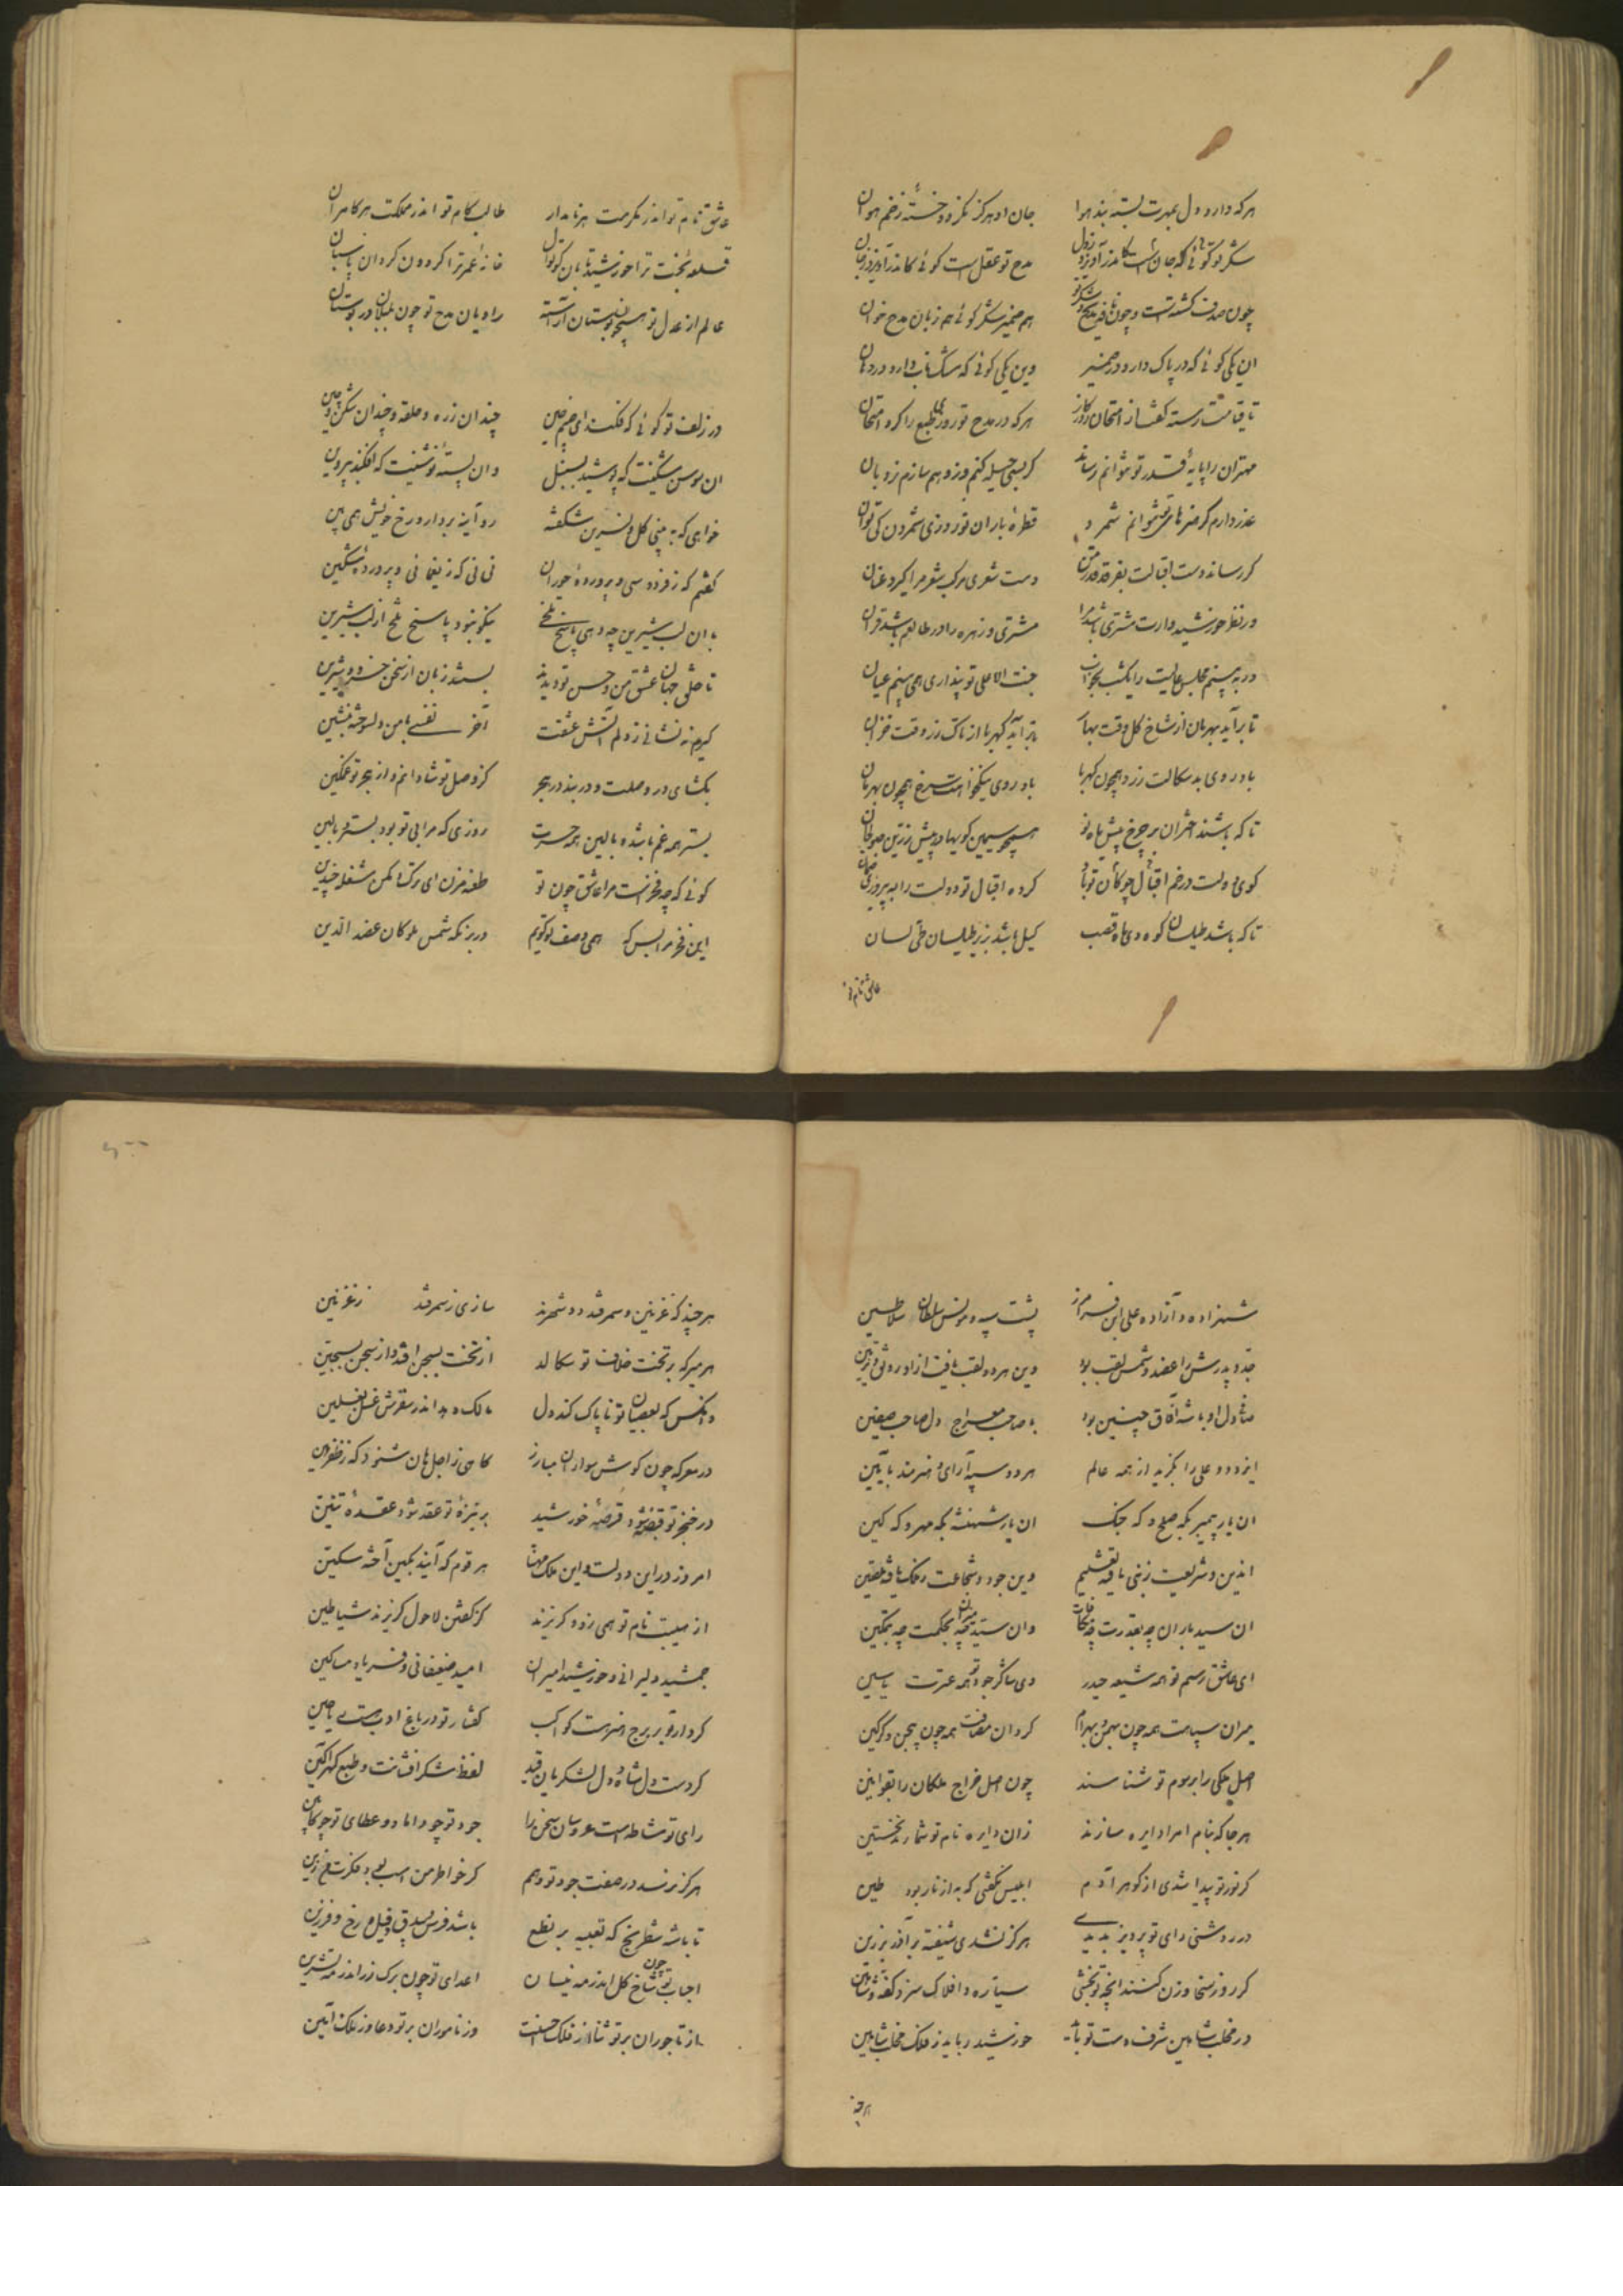 هرکه دارد دل بمهرت بسته بند هوا جان او هرکز نکردد خسته زخم هوان
شکر تو کوئی که جان است کاندر آویزد بدل مدح تو عقل است کوئی کاندر آویزد بجان
چون صدف کشته است و چون نافه ز مدح و شکر تو هم ضمیر شکر کوی هم زبان مدح خوان
این یکی کوئی که در پاک دارد در ضمیر وین یکی کوئی که مشک ناب دارد در دهان
تا قیامت رسته کشت از امتحان روزکار هرکه در مدح تو روزی طبع را کرد امتحان
مهتران را پایه قدر تو نتوانم رساند کر بسی حیله کنم وز وهم سازم نردبان
عذر دارم کر هنرهای تو نتوانم شمرد قطره باران نوروزی شمردن کی توان
کر رساند دست اقبالت بفرقد فرق من دست شعری مرکب شعر مرا کیرد عنان
ور نظر خورشیدوارت مشتری باشد مرا مشتری و زهره را در طالعم باشد قران
ور ببینم مجلس عالیت را یکشب بخواب جنت الاعلی تو پنداری همی بینم عیان
تا برآید بهرمان از شاخ کل وقت بهار تا برآید کهربا از تاک رز وقت خزان
باد روی بدسکالت زرد همچون کهربا باد روی نیکخواهت سرخ همچون بهرمان
تا که باشند اختران بر چرخ پیش ماه نو همچو سیمین کویها در پیش زرین صولجان
کوی دولت در خم اقبال چوکان تو باد کرده اقبال تو دولت را به پیروزی ضمان
تا که باشد طیلسان کوه دی ماه قصب کیل باشد زیر طیلسان حتی لسان
عاشق نام تو
عاشق نام تو اندر مکرمت هر نامدار طالب کام تو اندر مملکت هر کامران
قلعه بخت ترا خورشید تابان کوتوال خانه عمر ترا کردون کردان پاسبان
عالم از عدل تو همچو بوستان آراسته راویان مدح تو چون بلبلان در بوستان
در زلف تو کوئی که فکند ای صنم چین چندان زره و حلقه و چندان شکن و چین
آن سوسن بشکفت که پوشید بسنبل وان پسته نوشینت که افکند بپروین
خواهی که ببینی کل و نسرین شکفته رو آینه بردار و رخ خویش همی بین
کفتم که ز فردوسی و پرورده حوران نی نی که ز یغمائی و پرورده مشکین
با آن لب شیرین چه دهی پاسخ تلخم نیکو نبود پاسخ تلخ از لب شیرین
تا خلق جهان عشق من و حسن تو دیدند بستند زبان از سخن خسرو و شیرین
کیرم نه نشانی ز دلم آتش عشقت آخر نفسی با من دلسوخته بنشین
بکشای در وصلت و دربند در هجر کز وصل تو شادانم و از هجر تو غمکین
بستر همه غم باشد و بالین همه حسرت روزی که مرا بی تو بود بستر و بالین
کوئی که چه فخر است مرا عاشق چون تو طعنه مزن ای ترک و مکن مشغله چندین
این فخر مرا بس که همی وصف تو کویم در بزمکه شمس ملوکان عضد الدین
شهزاده و آزاده علی ابن فرامرز پشت سپه و مونس سلطان سلاطین
جد و پدرش را عضد و شمس لقب بود وین هر دو لقب یافت از او رونق و تزیین
مشادل او باشه آفاق چنین بود با صاحب معراج دل صاحب صفین
ایزد دو علی را بکزید از همه عالم هر دو سپه آرای و هنرمند بآیین
آن یار پیمبر بکه صلح و که جنک این یار شهنشه بکه مهر و که کین
ازین و شریعت ز نبی یافته تعلیم وین جود و شجاعت ز ملک یافته تلقین
آن سید یاران چه بقدرت چه مکافات وان سید میران چه بحکمت چه بتمکین
ای عاشق رسم تو همه شیعه حیدر وی شاکر جود تو همه عترت یاسین
میران سپاهت همه چون بهمن و بهرام کردان مصافت همه چون بیژن و کرکین
اصل ملکی را برسوم تو شناسند چون اصل خراج ملکان را بقوانین
هر جا که بنام امرا دایره سازند زان دایره نام تو شمارند نخستین
کر نور تو پیدا شدی از کوهر آدم ابلیس نکفتی که به از نار بود طین
ور روشنی رای تو پرویز بدیدی هرکز نشدی شیفته بر آذر برزین
کر روز سخا وزن کنند آنچه تو بخشی سیاره و افلاک سزد کفه و شاهین
در مخلب شاهین شرف دست تو باشد خورشید رباید ز فلک مخلب شاهین
هرچند
هرچند که غزنین و سمرقند دو شهرند سازی ز سمرقند ز غزنین
هر میر که بر تخت خلاف تو سکالد از تخت بسجن افتد و از سجن بسجین
وانکس که بعصیان تو ناپاک کند دل مالک دهد اندر سقرش غسل بغسلین
در معرکه چون کوش سواران مبارز کاهی ز اجل هان شنود که ز ظفر هین
در خنجر تو قبضه شود قرصه خورشید بر نیزه تو عقد شود عقده تنین
امروز در این دولت و این ملک مهنا هر قوم که آیند بکین آخته سکین
از هیبت نام تو همی زود کریزند کز کفتن لاحول کریزند شیاطین
جمشید دلیرانی و خورشید امیران امید ضعیفانی و فریاد مساکین
کردار تو بر برج هنر هست کواکب کفتار تو در باغ ادب هست ریاحین
کردست دل شاه و دل لشکریان قید لفظ شکر افشانت و طبع کهر آکین
رای تو مشاطه است عروسان سخن را جود تو چو داماد و عطای تو چو کابین
هرکز نرسد در صفت جود تو وهم کر خاطر من اسب بود فکرت من زین
تا باشد شطرنج که تعبیه بر نطع باشد فرس و بیدق و فیل و رخ و فرزین
احباب تو چون شاخ کل اندر مه نیسان اعدای تو چون برک رز اندر مه تشرین
از تاجوران بر تو ثنا وز فلک احسنت وز ناموران بر تو دعا وز ملک آمین